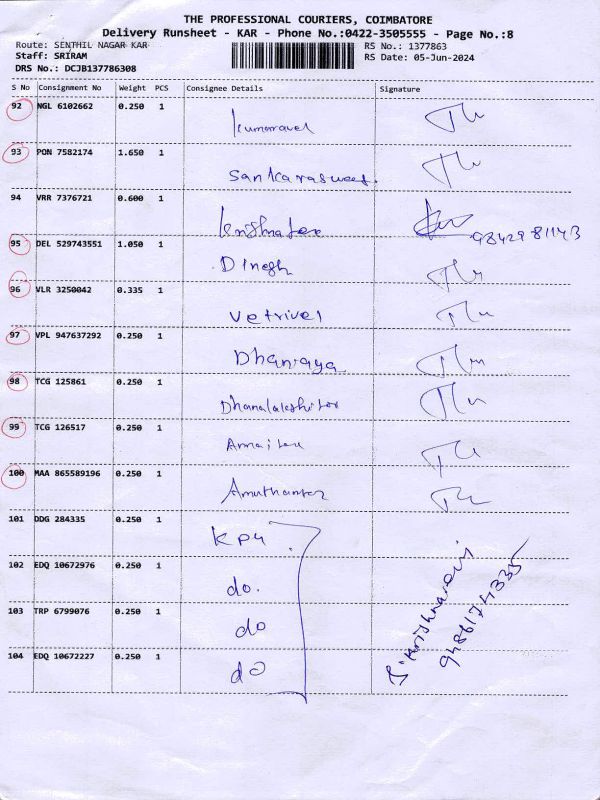 THE PROFESSIONAL COURIERS, COIMBATORE
Delivery Runsheet - KAR - Phone No.:0422-3505555 - Page No.:8
Route: SENTHIL NAGAR KAR RS No.: 1377863
Staff: SRIRAM RS Date: 05-Jun-2024
DRS No.: DCJB137786308
S No Consignment No Weight PCS Consignee Details Signature
92 NGL 6102662 0.250 1
Kumaravel
93 PON 7582174 1.650 1
94 VRR 7376721 0.600 1
98429 81143
95 DEL 529743551 1.050 1
Dinesh
96 VLR 3250042 0.335 1
Vetrivel
97 VPL 947637292 0.250 1
98 TCG 125861 0.250 1
99 TCG 126517 0.250 1
100 MAA 865589196 0.250 1
101 DDG 284335 0.250 1
102 EDQ 10672976 0.250 1
do.
103 TRP 6799076 0.250 1
do
104 EDQ 10672227 0.250 1
do